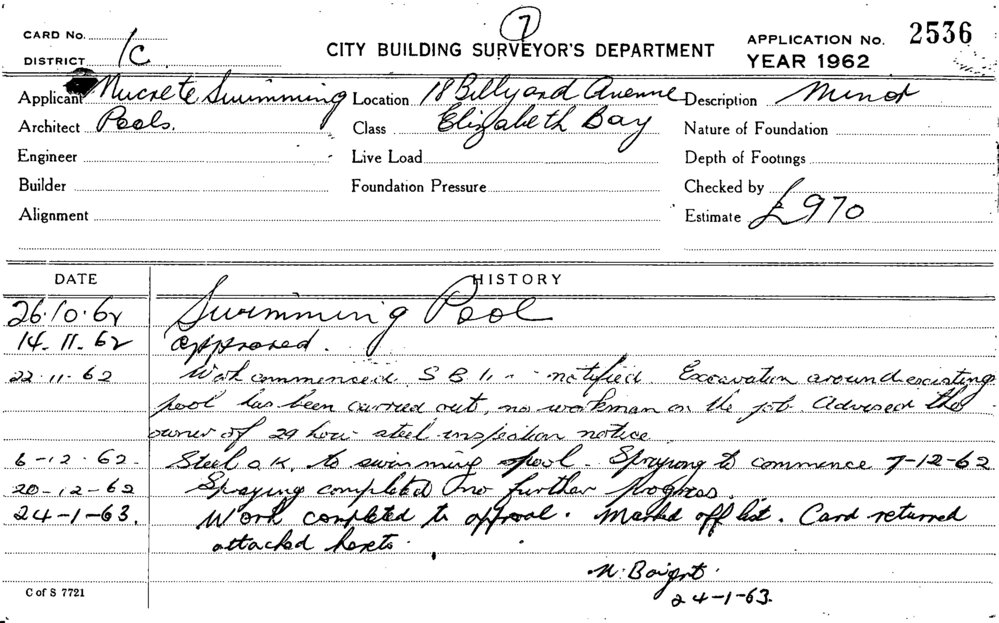 7
CARD No.
DISTRICT 1C
CITY BUILDING SURVEYOR'S DEPARTMENT
APPLICATION No. 2536
YEAR 1962
Applicant Nucrete Swimming
Architect Pools.
Engineer
Builder
Alignment
Location 18 Billyard Avenue
Class Elizabeth Bay
Live Load
Foundation Pressure
Description Minor
Nature of Foundation
Depth of Footings
Checked by
Estimate £970
DATE HISTORY
26.10.62 Swimming Pool
14.11.62 approved.
22.11.62 Work commenced. S B notified. Excavation around existing
pool has been carried out, no workman on the job. Advised the
owner of hour steel inspection notice
6-12.62. Steel o.K. to swimming pool. Spraying to commence 7-12-62
20-12-62 Spraying completed no further progress.
24-1-63. Work completed to approval. Marked off list. Card returned
attached hereto.
N.
24-1-63.
C of S 7721